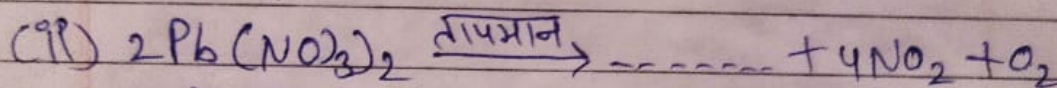 (ii) 2Pb(NO3)2 तापमान → ------- + 4NO2 + O2